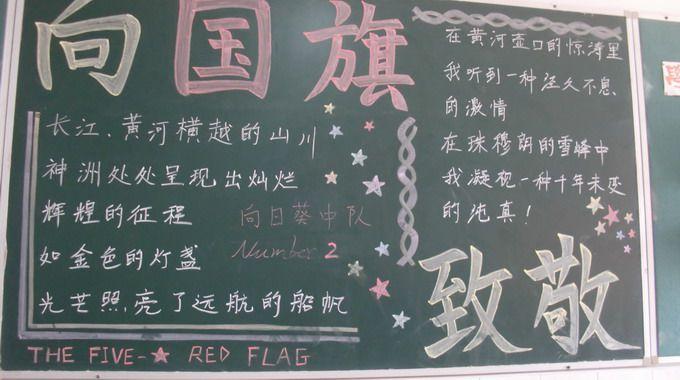 向国旗
长江、黄河横越的山川
神洲处处呈现出灿烂
辉煌的征程
如金色的灯盏
光芒照亮了远航的船帆
向日葵中队
Number 2
THE FIVE-★ RED FLAG
在黄河壶口的惊涛里
我听到一种泾久不息
的激情
在珠穆朗的雪峰中
我凝视一种千年未变
的纯真！
致敬